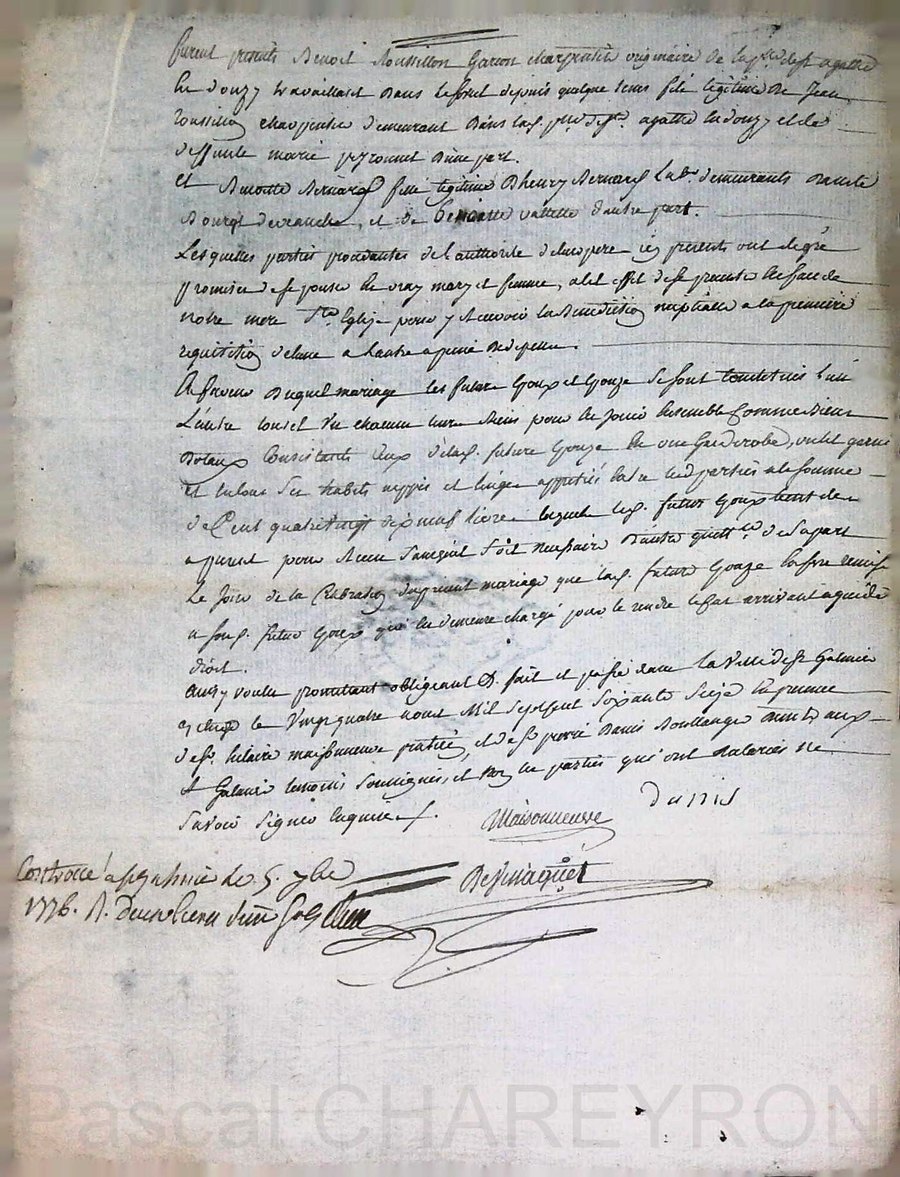 furent presents Benoit Roussillon Garcon charpentier originaire de la psse de st agathe
en donzy travaillant dans depuis quelque tems fils legitime de Jean
roussillon charpentier demeurant dans lad. psse de ste agathe en donzy et de
deffunte marie peyronnet d'une part.
et Benoitte Bernard fille legitime d'henry Bernard labr demeurants dans le
Bourg de et de Benoitte vallette d'autre part.
Lesquelles parties procedantes de l'authorité de leur pere icy presents ont de gré
promis de se pouser en vray mary et femme, a cet effet de se presenter en face de
notre mere Ste Eglise pour y recevoir la Benediction nuptiale a la premiere
requisition de l'une a l'autre a peine de depens.
A faveur duquel mariage les futurs Epoux et Epouze se sont constitués l'un
L'autre tous et un chacun leurs Biens pour en jouir ensemble comme Biens
Dotaux Consistants ceux de lad. future Epouze en une Garderobe, un lit garni
et en tous ses habits nippes et linges appretiés entre les parties a la somme
de Cent quatrevingt dix neuf livres laquelle led. futur Epoux
apresent pour reçue sans qu'il soit necessaire d'autre quittce de sa part
Le Jour de la Celebration du present mariage que lad. future Epouze
a sond. futur Epoux qui en demeure chargé pour le rendre le cas arrivant a qui de
droit.
Ainsy voulu promettant obligeant &. fait et passé dans la Ville de st Galmier
le Vingt quatre Mil Sept Cent Soixante Seize En presence
de sr hilaire maisonneuve praticien, et de sr pierre Danis Boullanger
st Galmier temoins soussignés, et non les parties qui ont declarées ne
savoir signer enquises.
Maisonneuve Danis
Controllé a st galmier le 5. 7bre
1776. R.